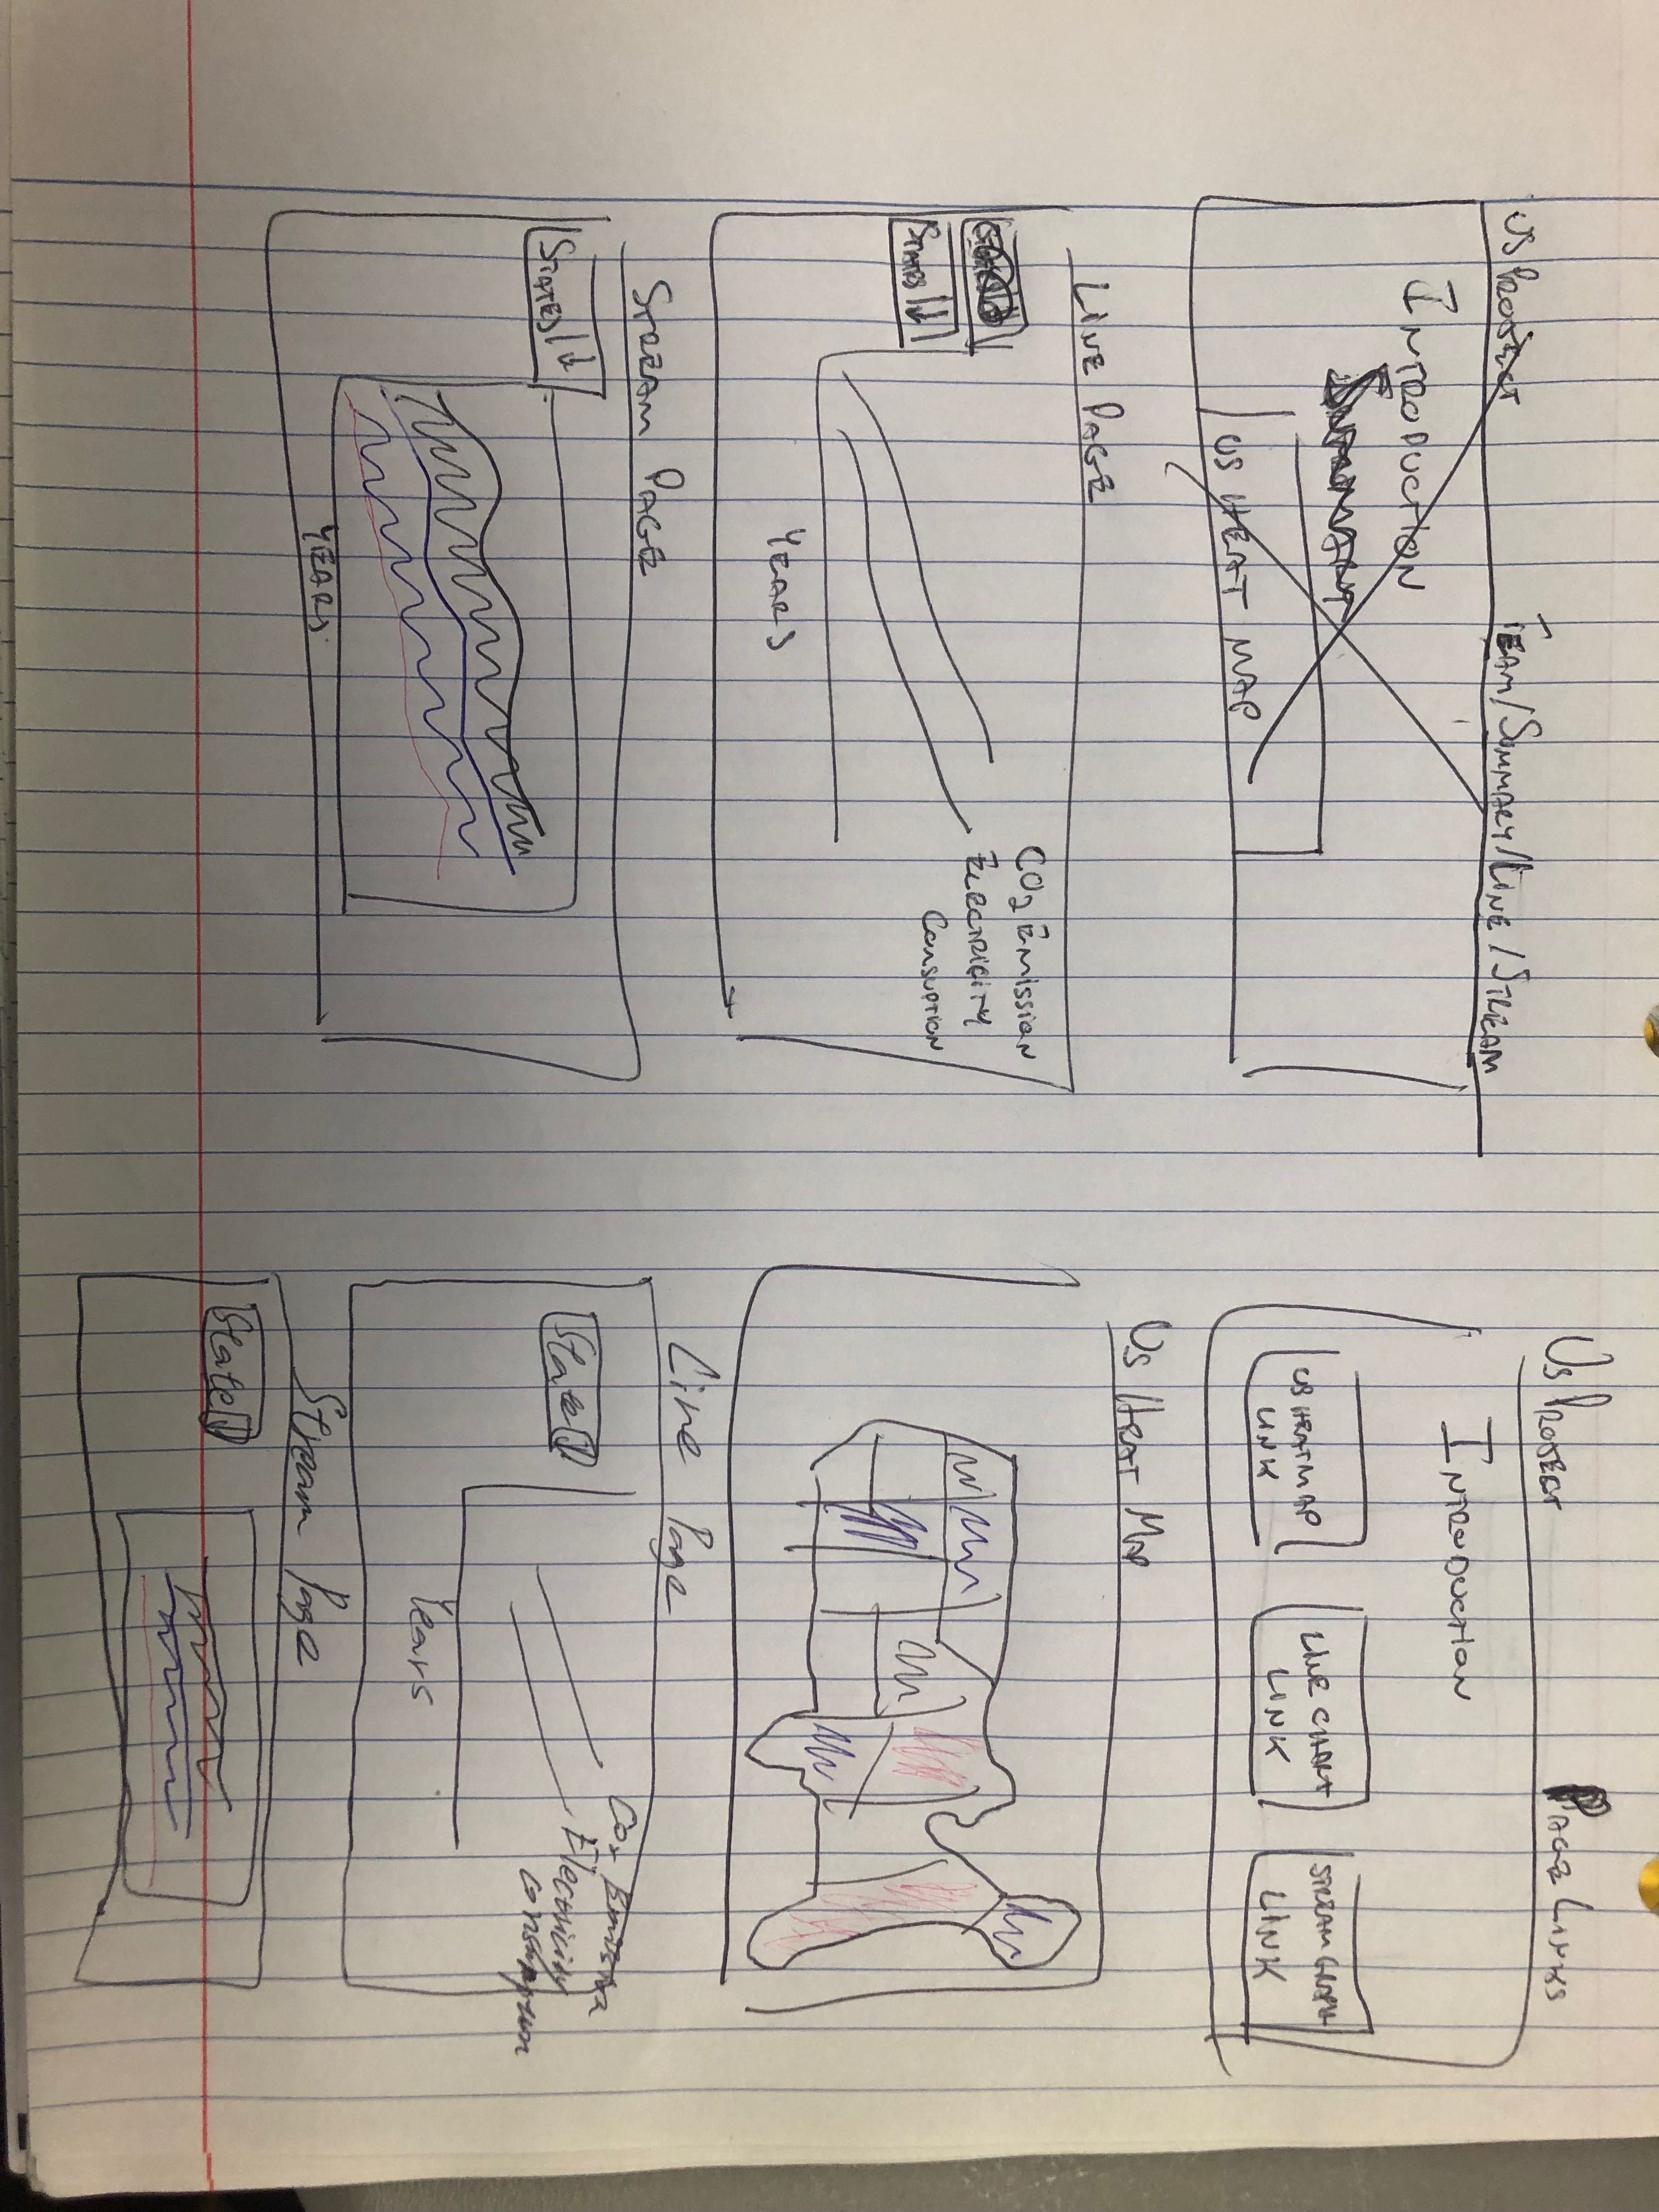 US PROJECT
TEAM/SUMMARY/LINE/STREAM
INTRODUCTION
US HEAT MAP
LINE PAGE
STATES
CO2 EMISSION
ELECTRICITY
CONSUPTION
YEARS
STREAM PAGE
STATES
YEARS
US PROJECT
PAGE LINKS
INTRODUCTION
US HEATMAP
LINK
LINE CHART
LINK
STREAM GRAPH
LINK
US HEAT MAP
Line Page
State
Electricity
consumption
Years
Stream Page
State